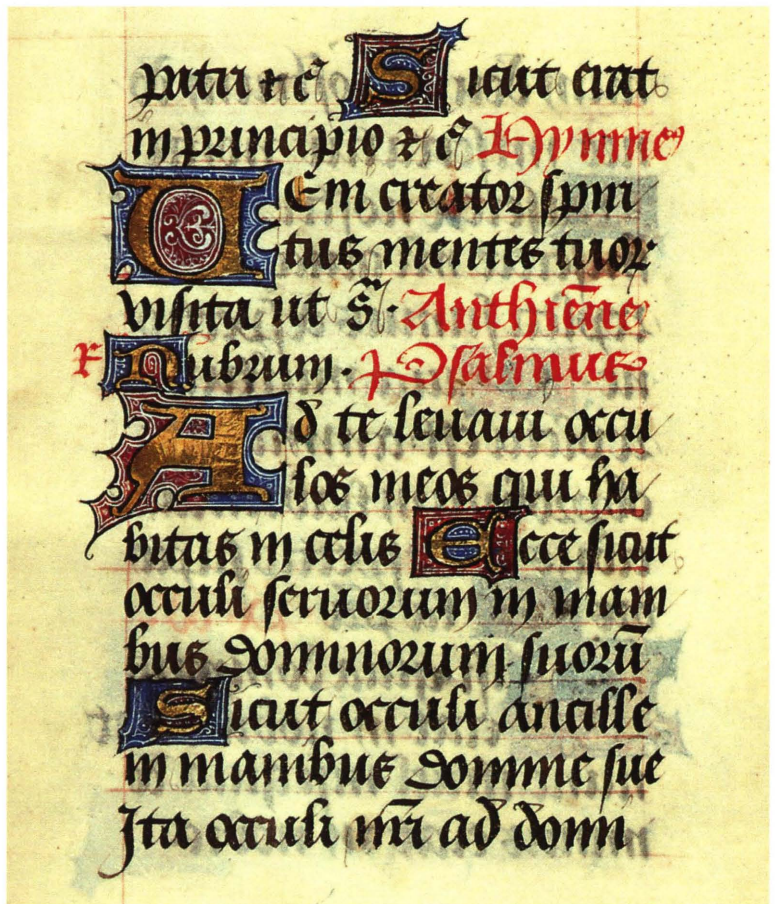 patri ⁊ c̃ Sicut erat
in principio ⁊ c̃ Hymne
UEni creator spiri
tus mentes tuoꝝ
visita ut s̃. Anthiēne
Nubrum. Psalmus
Ad te leuaui occu
los meos qui ha
bitas in celis Ecce sicut
occuli seruorum in mani
bus dominorum suorū
Sicut occuli ancille
in manibus domine sue
Ita occuli nr̄i ad domi